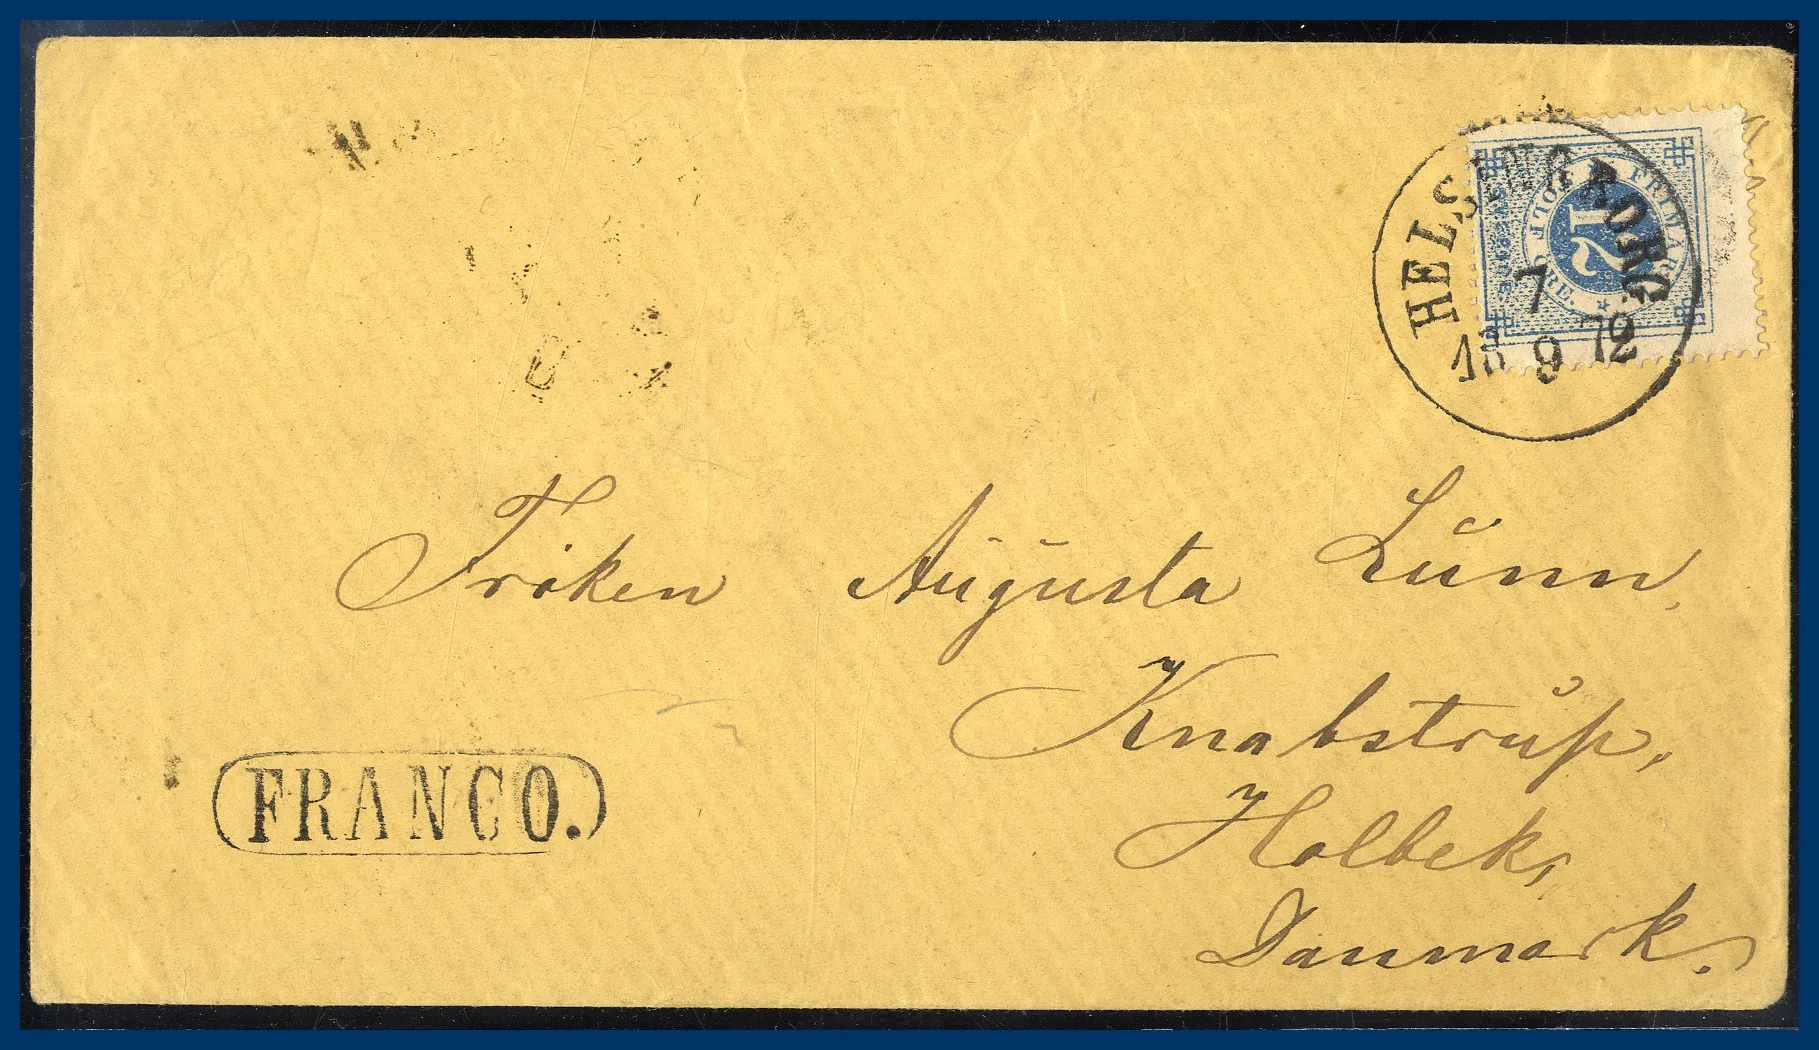 HELSINGBORG
7
18 9 72
FRIMÄRKE
TOLF ÖRE.
12
Fröken Augusta Lünn,
Knabstrup,
Holbek,
Danmark.
FRANCO.